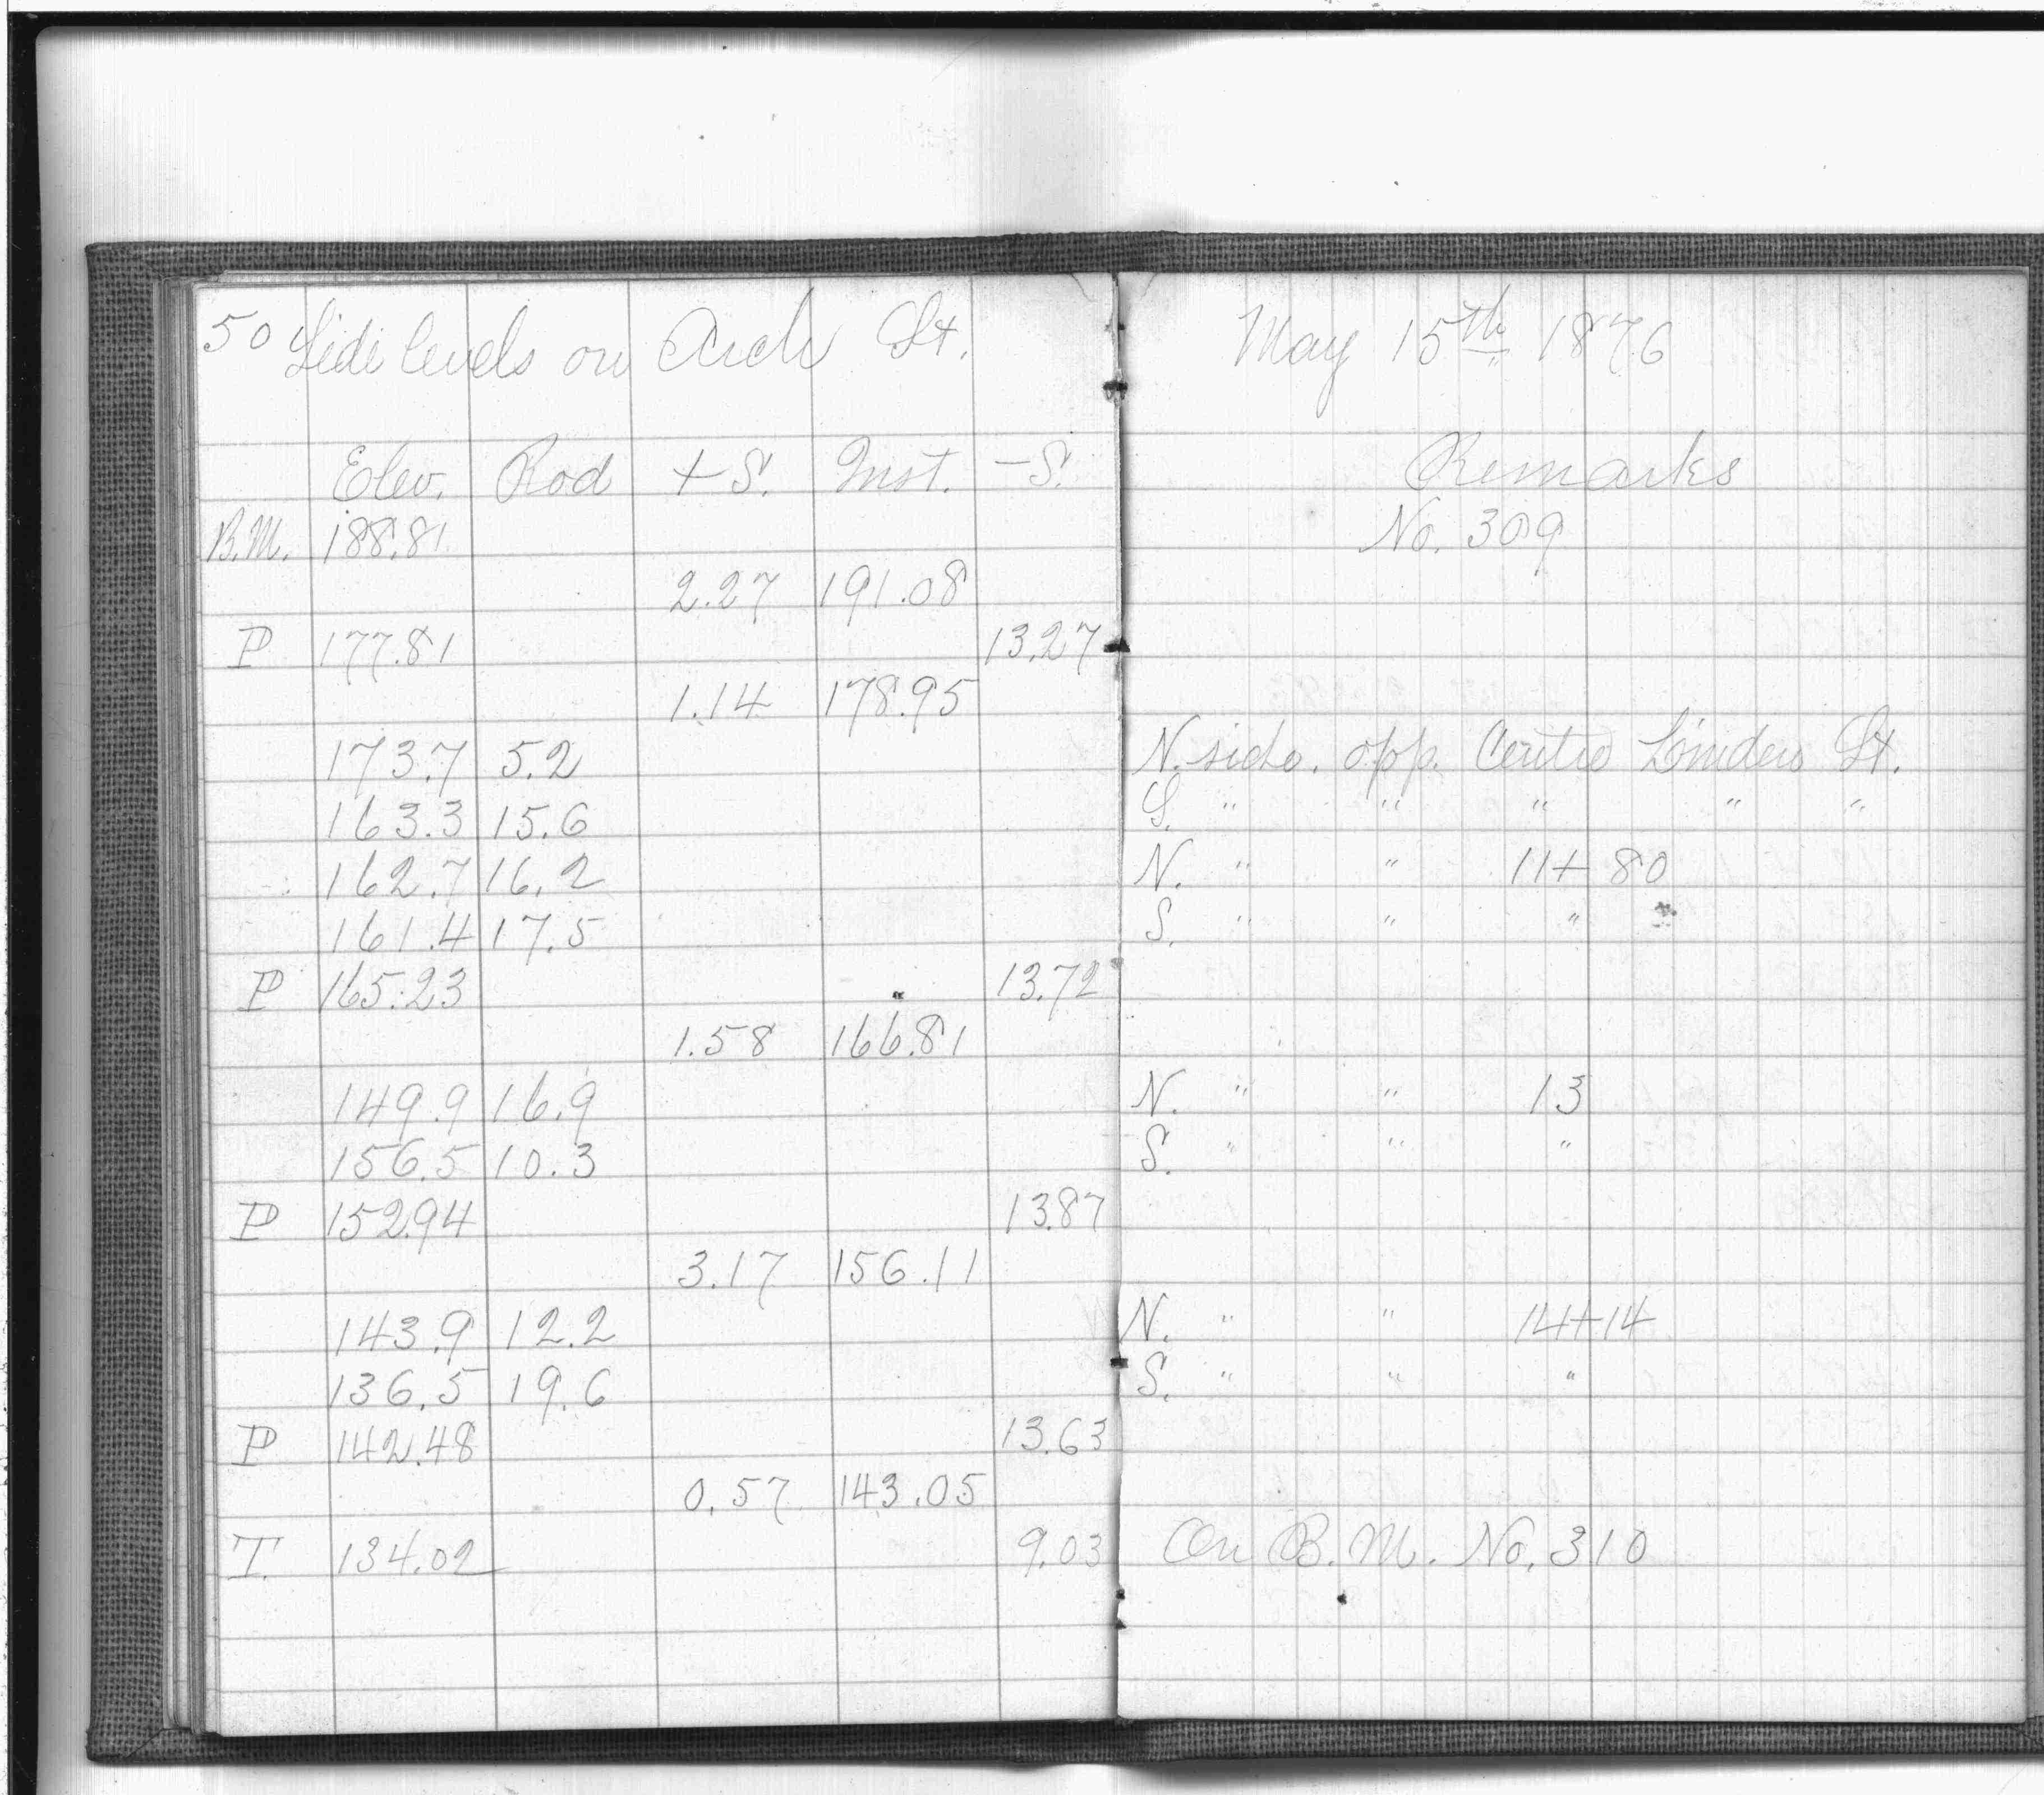 50 Side levels on Arch St. May 15th 1876
Elev. Rod +S. Inst. -S. Remarks
B.M. 188.81 No. 309
2.27 191.08
P 177.81 13.27
1.14 178.95
173.7 5.2 N. side. opp. Centre Linden St.
163.3 15.6 S. " " " " "
162.7 16.2 N. " " 11+80
161.4 17.5 S. " " "
P 165.23 13.72
1.58 166.81
149.9 16.9 N. " " 13
156.5 10.3 S. " " "
P 152.94 13.87
3.17 156.11
143.9 12.2 N. " " 14+14
136.5 19.6 S. " " "
P 142.48 13.63
0.57 143.05
T. 134.02 9.03 On B.M. No. 310